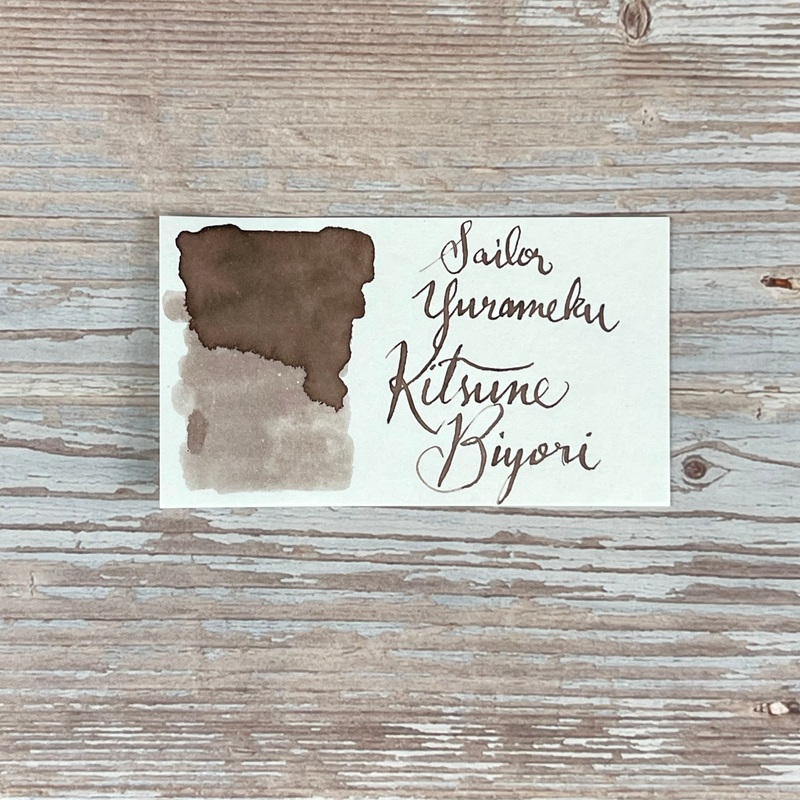 Sailor
Yurameku
Kitsune
Biyori